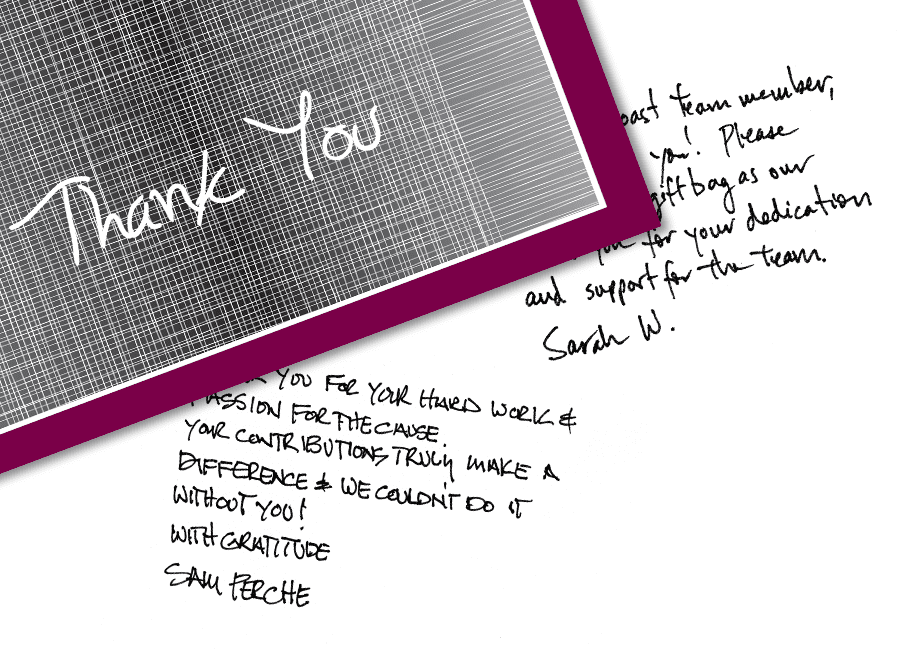 Thank You
oast team member,
you! Please
gift bag as our
you for your dedication
and support for the team.
Sarah W.
YOU FOR YOUR HARD WORK &
PASSION FOR THE CAUSE.
YOUR CONTRIBUTIONS TRULY MAKE A
DIFFERENCE & WE COULDN'T DO IT
WITHOUT YOU!
WITH GRATITUDE
SAM FERCHE